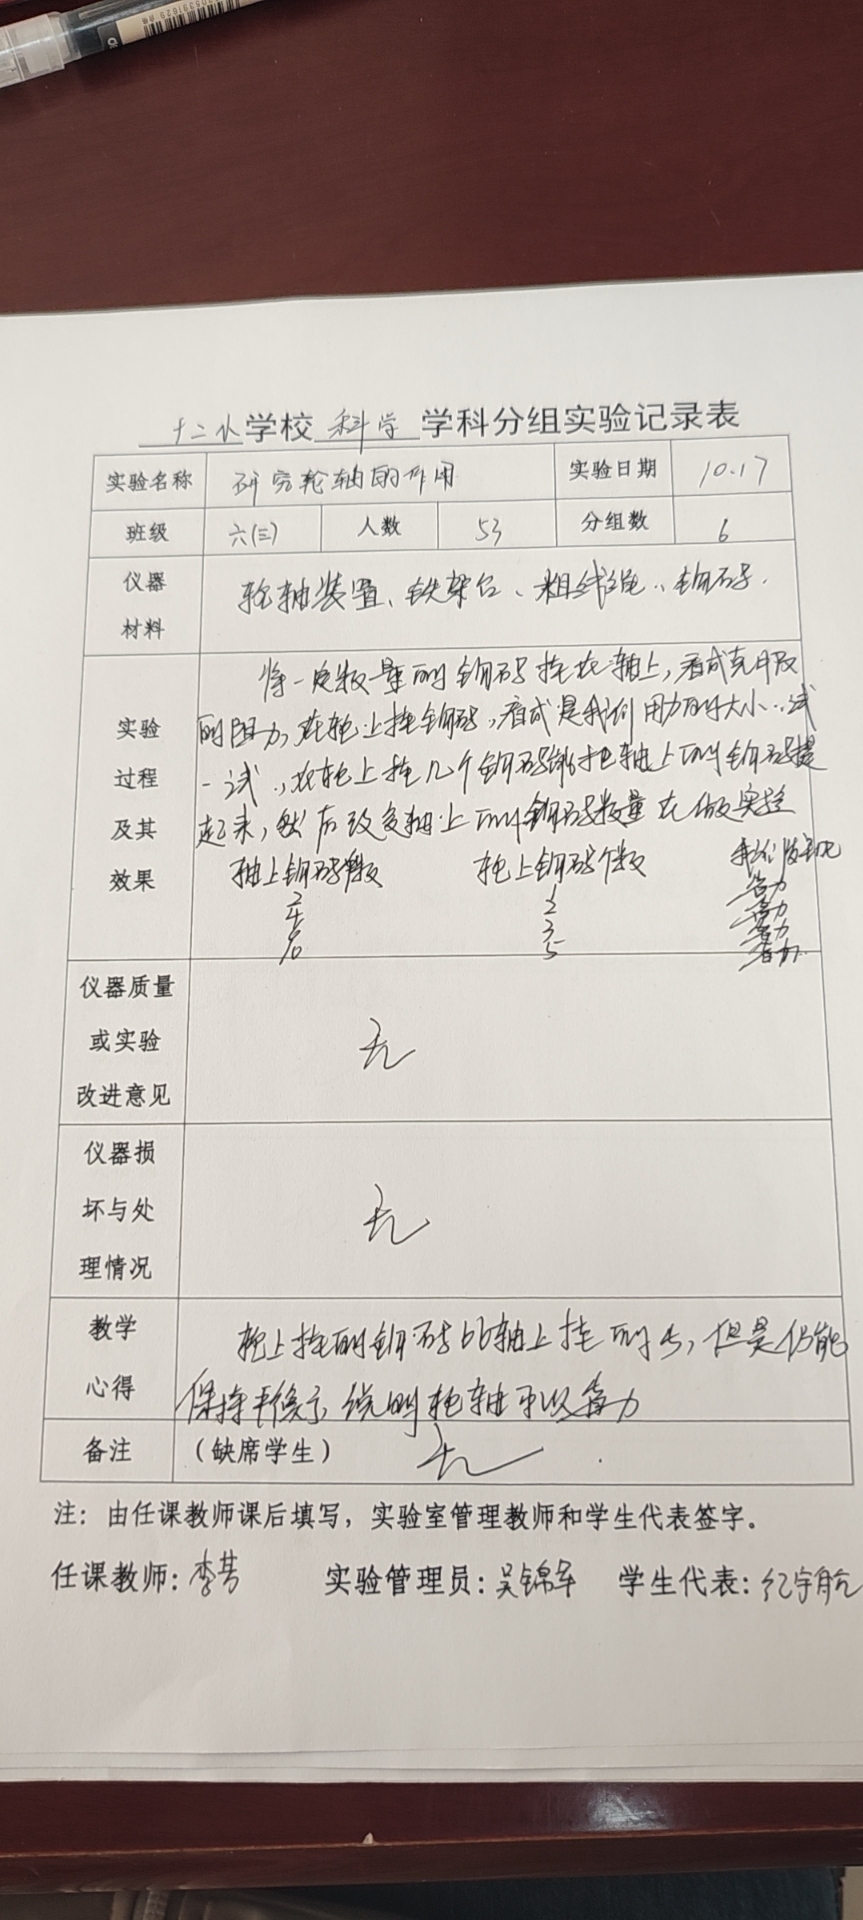 十二小学校 科学 学科分组实验记录表
实验名称 研究轮轴的作用 实验日期 10.17
班级 六(三) 人数 53 分组数 6
仪器材料 轮轴装置、铁架台、粗线绳、钩码.
实验过程及其效果
将一定数量的钩码挂在轴上,看成克服
的阻力,在轮上挂钩码,看成是我们用力的大小.试
一试,在轮上挂几个钩码能把轴上的钩码提
起来,然后改变轴上的钩码数量在做实验
轴上钩码个数 轮上钩码个数 我们发现
2 1 省力
4 2 省力
6 3 省力
10 5 省力
仪器质量或实验改进意见 无
仪器损坏与处理情况 无
教学心得
轮上挂的钩码比轴上挂的少,但是仍能
保持平衡,说明轮轴可以省力
备注 (缺席学生) 无
注:由任课教师课后填写,实验室管理教师和学生代表签字。
任课教师:李芳 实验管理员:吴锦军 学生代表:纪宇航